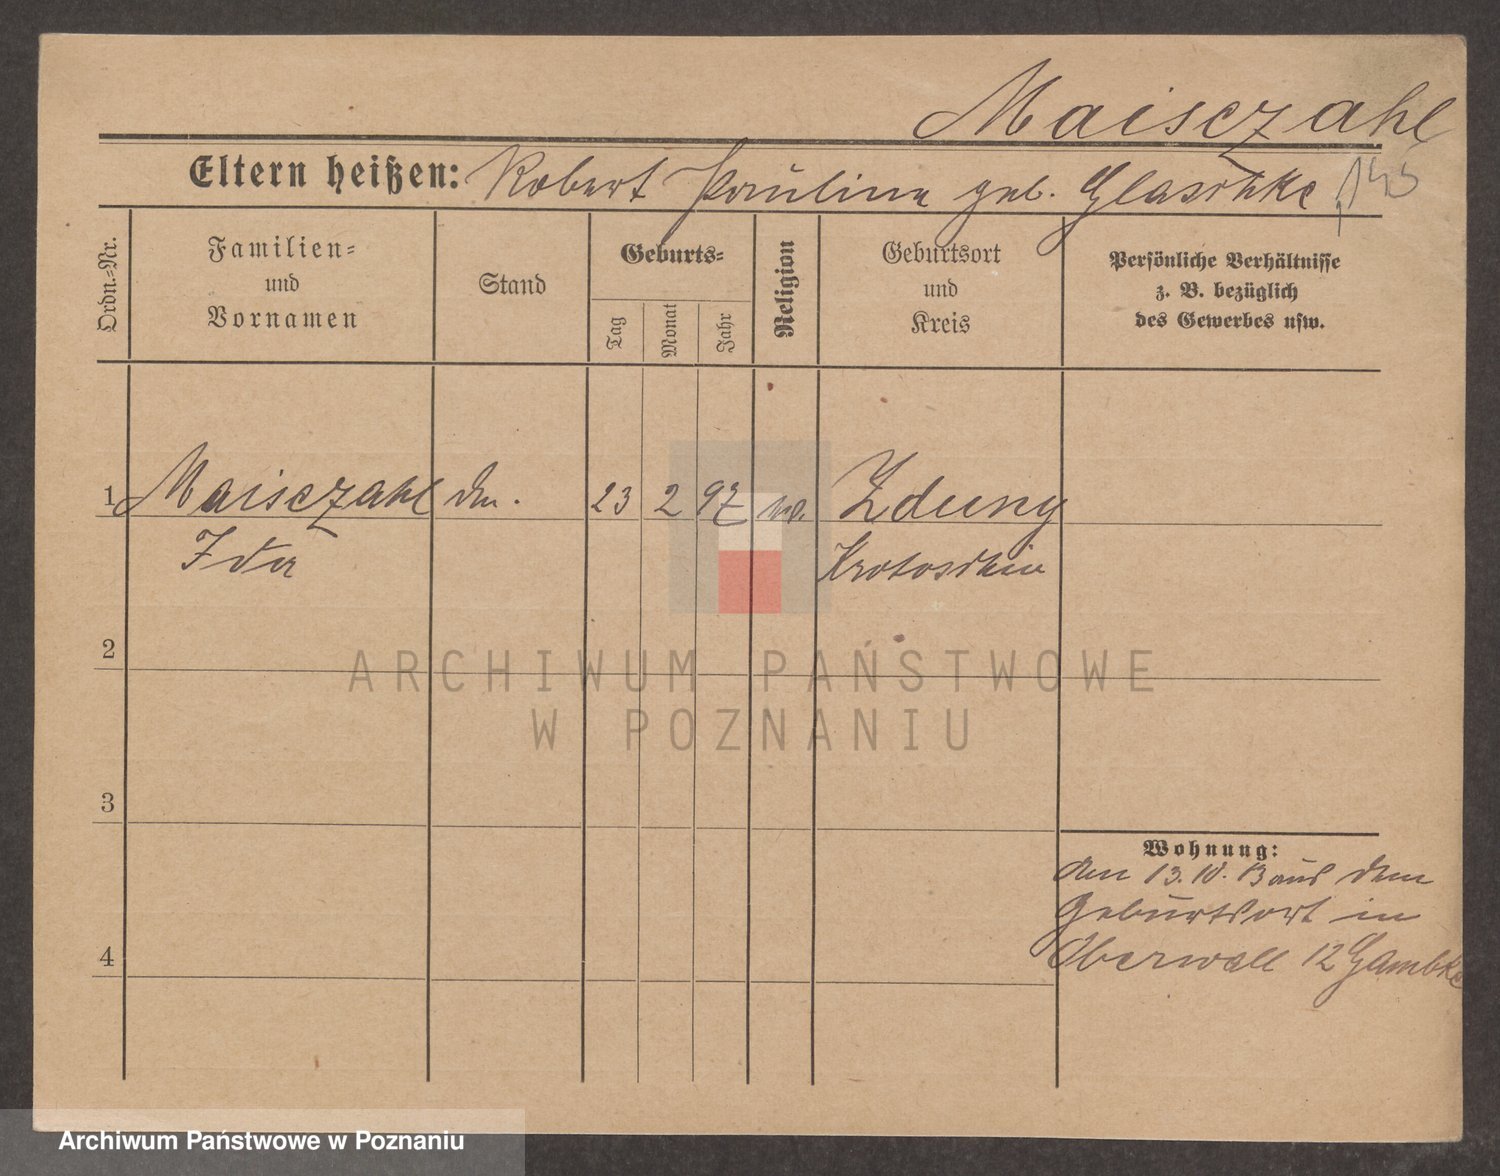 Maisczahl
Eltern heißen: Robert Paulina geb. Glaschke 143
Ordn.-Nr.
Familien-
und
Vornamen
Stand
Geburts-
Tag
Monat
Jahr
Religion
Geburtsort
und
Kreis
Persönliche Verhältnisse
z. B. bezüglich
des Gewerbes usw.
1 Maisczahl 23 2 97 Zduny
Ida Krotoschin
2
3
4
Wohnung:
den 13. 10. 13 aus dem
Geburtsort in
Oberwall 12 Gambke
ARCHIWUM PAŃSTWOWE
W POZNANIU
Archiwum Państwowe w Poznaniu